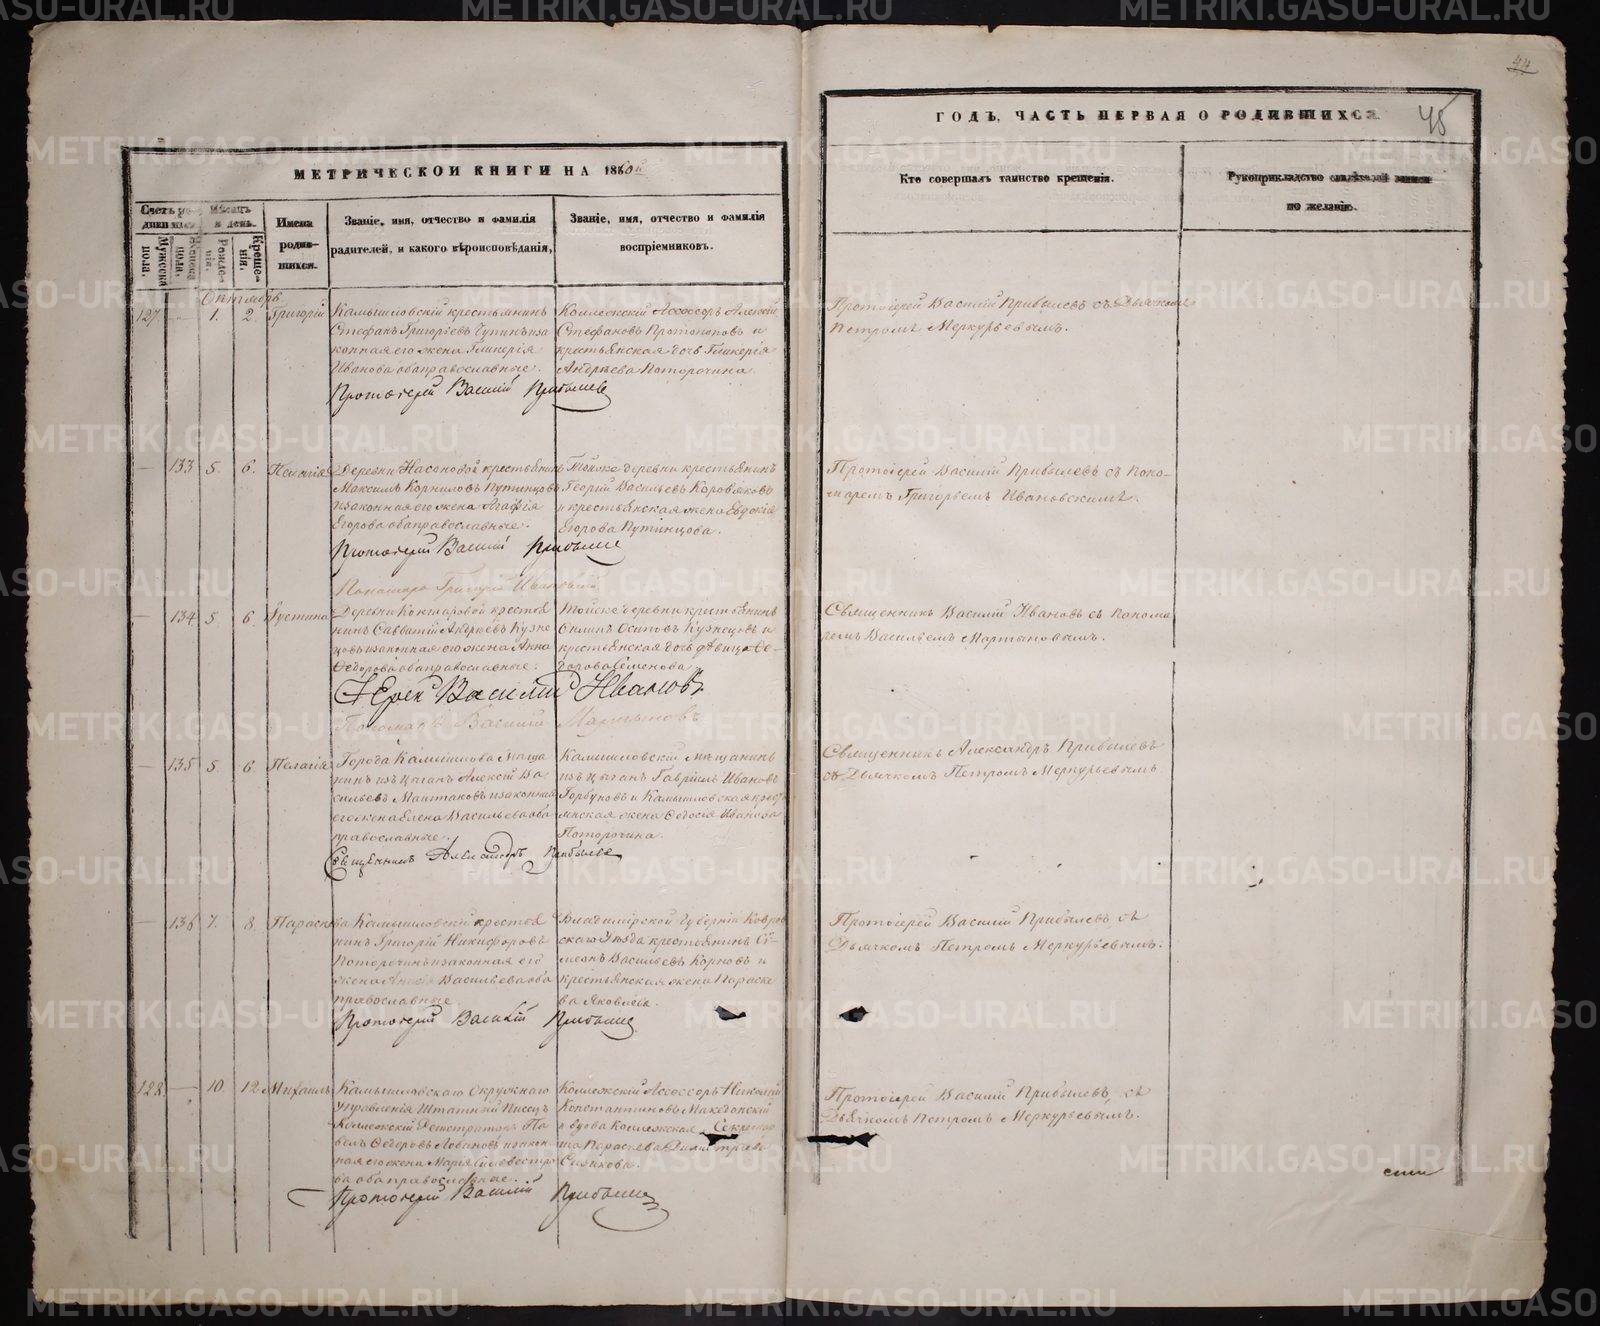 44
45
МЕТРИЧЕСКОЙ КНИГИ НА 1860й
ГОДЪ, ЧАСТЬ ПЕРВАЯ О РОДИВШИХСЯ.
Мужеска пола.
Женска пола.
Рожденія.
Крещенія.
Имена родившихся.
Званіе, имя, отчество и фамилія
родителей, и какого вѣроисповѣданія,
Званіе, имя, отчество и фамилія
воспріемниковъ.
Кто совершалъ таинство крещенія.
Рукоприкладство
по желанію.
Октябрь
127 — 1. 2. Григорій
Камышловскій крестьянинъ
Стефанъ Григорьевъ
конная его жена Гликерія
Иванова оба православные.
Коллежскій Ассесоръ Алексѣй
Стефановъ Протопоповъ и
крестьянская дочь Гликерія
Андреева Поторочина.
Протоіерей Василій Прибылевъ съ Дьячкомъ
Петромъ Меркурьевымъ.
Протоіерей Василій Прибылевъ
— 133 5. 6.
Деревни Насоновой крестьянинъ
Максимъ Корниловъ Путинцовъ
и законная его жена Агафія
Егорова оба православные.
Тойже деревни крестьянинъ
Георгій Васильевъ Коровяковъ
и крестьянская жена Евдокія
Егорова Путинцова.
Протоіерей Василій Прибылевъ съ Поно-
маремъ Григорьемъ Ивановскимъ.
Протоіерей Василій Прибылевъ
Пономарь Григорій Ивановскій
— 134 5 6. Іустина
Деревни крестья
нинъ Савватій Андреевъ Кузне
цовъ и законная его жена Анна
Ѳедорова оба православные.
Тойже деревни крестьянинъ
Осиповъ Кузнецовъ и
крестьянская дочь дѣвица Ѳе-
дорова Семенова
Священникъ Василій Ивановъ съ Понома
ремъ Васильемъ Мартыновымъ.
Іерей Василій Ивановъ
Пономарь Василій Мартыновъ
— 135 5 6. Пелагія
Города Камышлова Мѣща
нинъ изъ цыганъ Алексій Ва
сильевъ и законная
его жена Елена Васильева оба
православные.
Камышловскій мѣщанинъ
изъ цыганъ Гавріилъ Ивановъ
Горбуновъ и Камышловская крест
янская жена Ѳедосія Иванова
Поторочина.
Священникъ Александръ Прибылевъ
съ Дьячкомъ Петромъ Меркурьевымъ
Священникъ Александръ Прибылевъ
— 136 7. 8. Параскева
Камышловскій крестья
нинъ Григорій Никифоровъ
Поторочинъ и законная его
жена Васильева оба
православные.
Владимірской Губерніи Ковров
скаго Уѣзда крестьянинъ Си-
меонъ Васильевъ Корновъ и
крестьянская жена Параске
ва Яковлева.
Протоіерей Василій Прибылевъ съ
Дьячкомъ Петромъ Меркурьевымъ.
Протоіерей Василій Прибылевъ
128 — 10 12 Михаилъ
Камышловскаго Окружнаго
Управленія Штатный Писецъ
Коллежскій Регистраторъ Па
велъ Ѳедоровъ и закон
ная его жена Марія Сильвестро
ва оба православные.
Коллежскій Ассессоръ Николай
Константиновъ Македонскій
и вдова Коллежская Секретар
ша Параскева Димитріева
Протоіерей Василій Прибылевъ съ
Дьячкомъ Петромъ Меркурьевымъ.
Протоіерей Василій Прибылевъ
METRIKI.GASO-URAL.RU